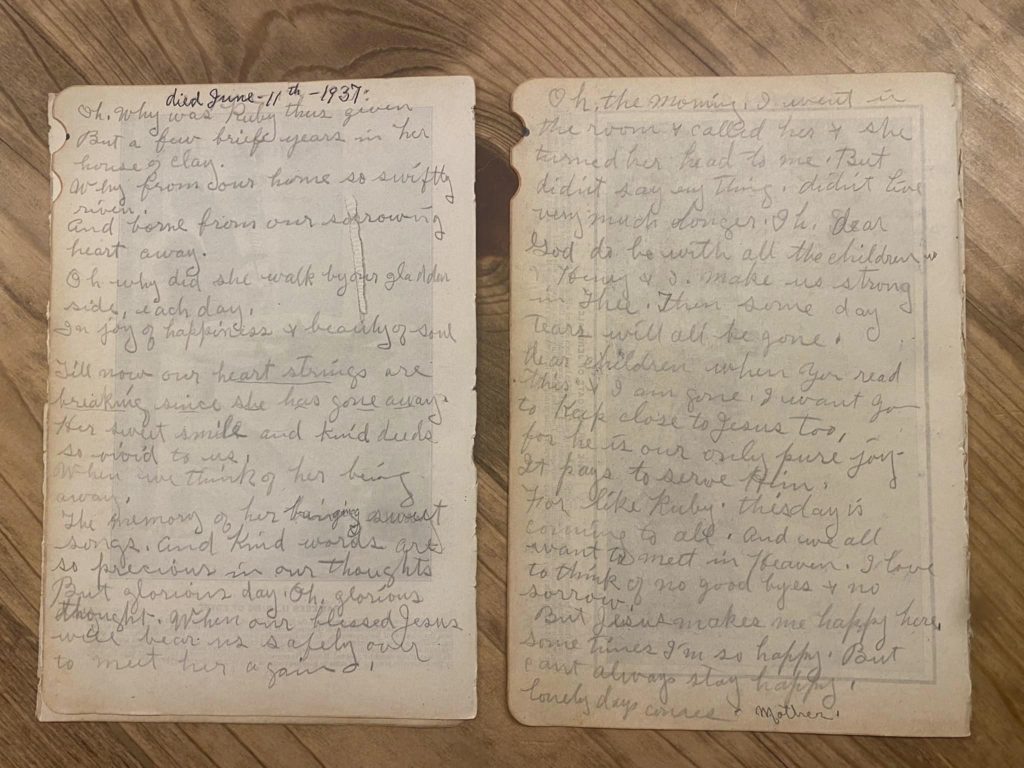 died June-11th-1937:
Oh. Why was Ruby thus given
But a few briefe years in her
house of clay.
Why from our home so swiftly
riven.
And borne from our sorrowing
heart away.
Oh why did she walk by our gladden
side, each day.
In joy of happiness & beauty of soul
Till now our heart strings are
breaking since she has gone away.
Her sweet smile and kind deeds
so vivid to us.
When we think of her being
away.
The memory of her singing sweet
songs. And kind words are
so precious in our thoughts
But glorious day Oh. glorious
thought. When our blessed Jesus
will bear us safely over
to meet her again.
Oh, the morning. I went in
the room & called her & she
turned her head to me. But
didn't say eny thing. didn't live
very much longer. Oh. dear
God do be with all the children
Henry & I. make us strong
in Thee. Then some day
tears will all be gone.
dear children when you read
this & I am gone. I want you
to keep close to Jesus too,
for he is our only pure joy
It pays to serve Him.
For like Ruby. this day is
coming to all. And we all
want to mett in Heaven. I love
to think of no good byes & no
sorrow.
But Jesus makes me happy here,
some times I'm so happy. But
cant always stay happy,
lonely days comes. Mother.